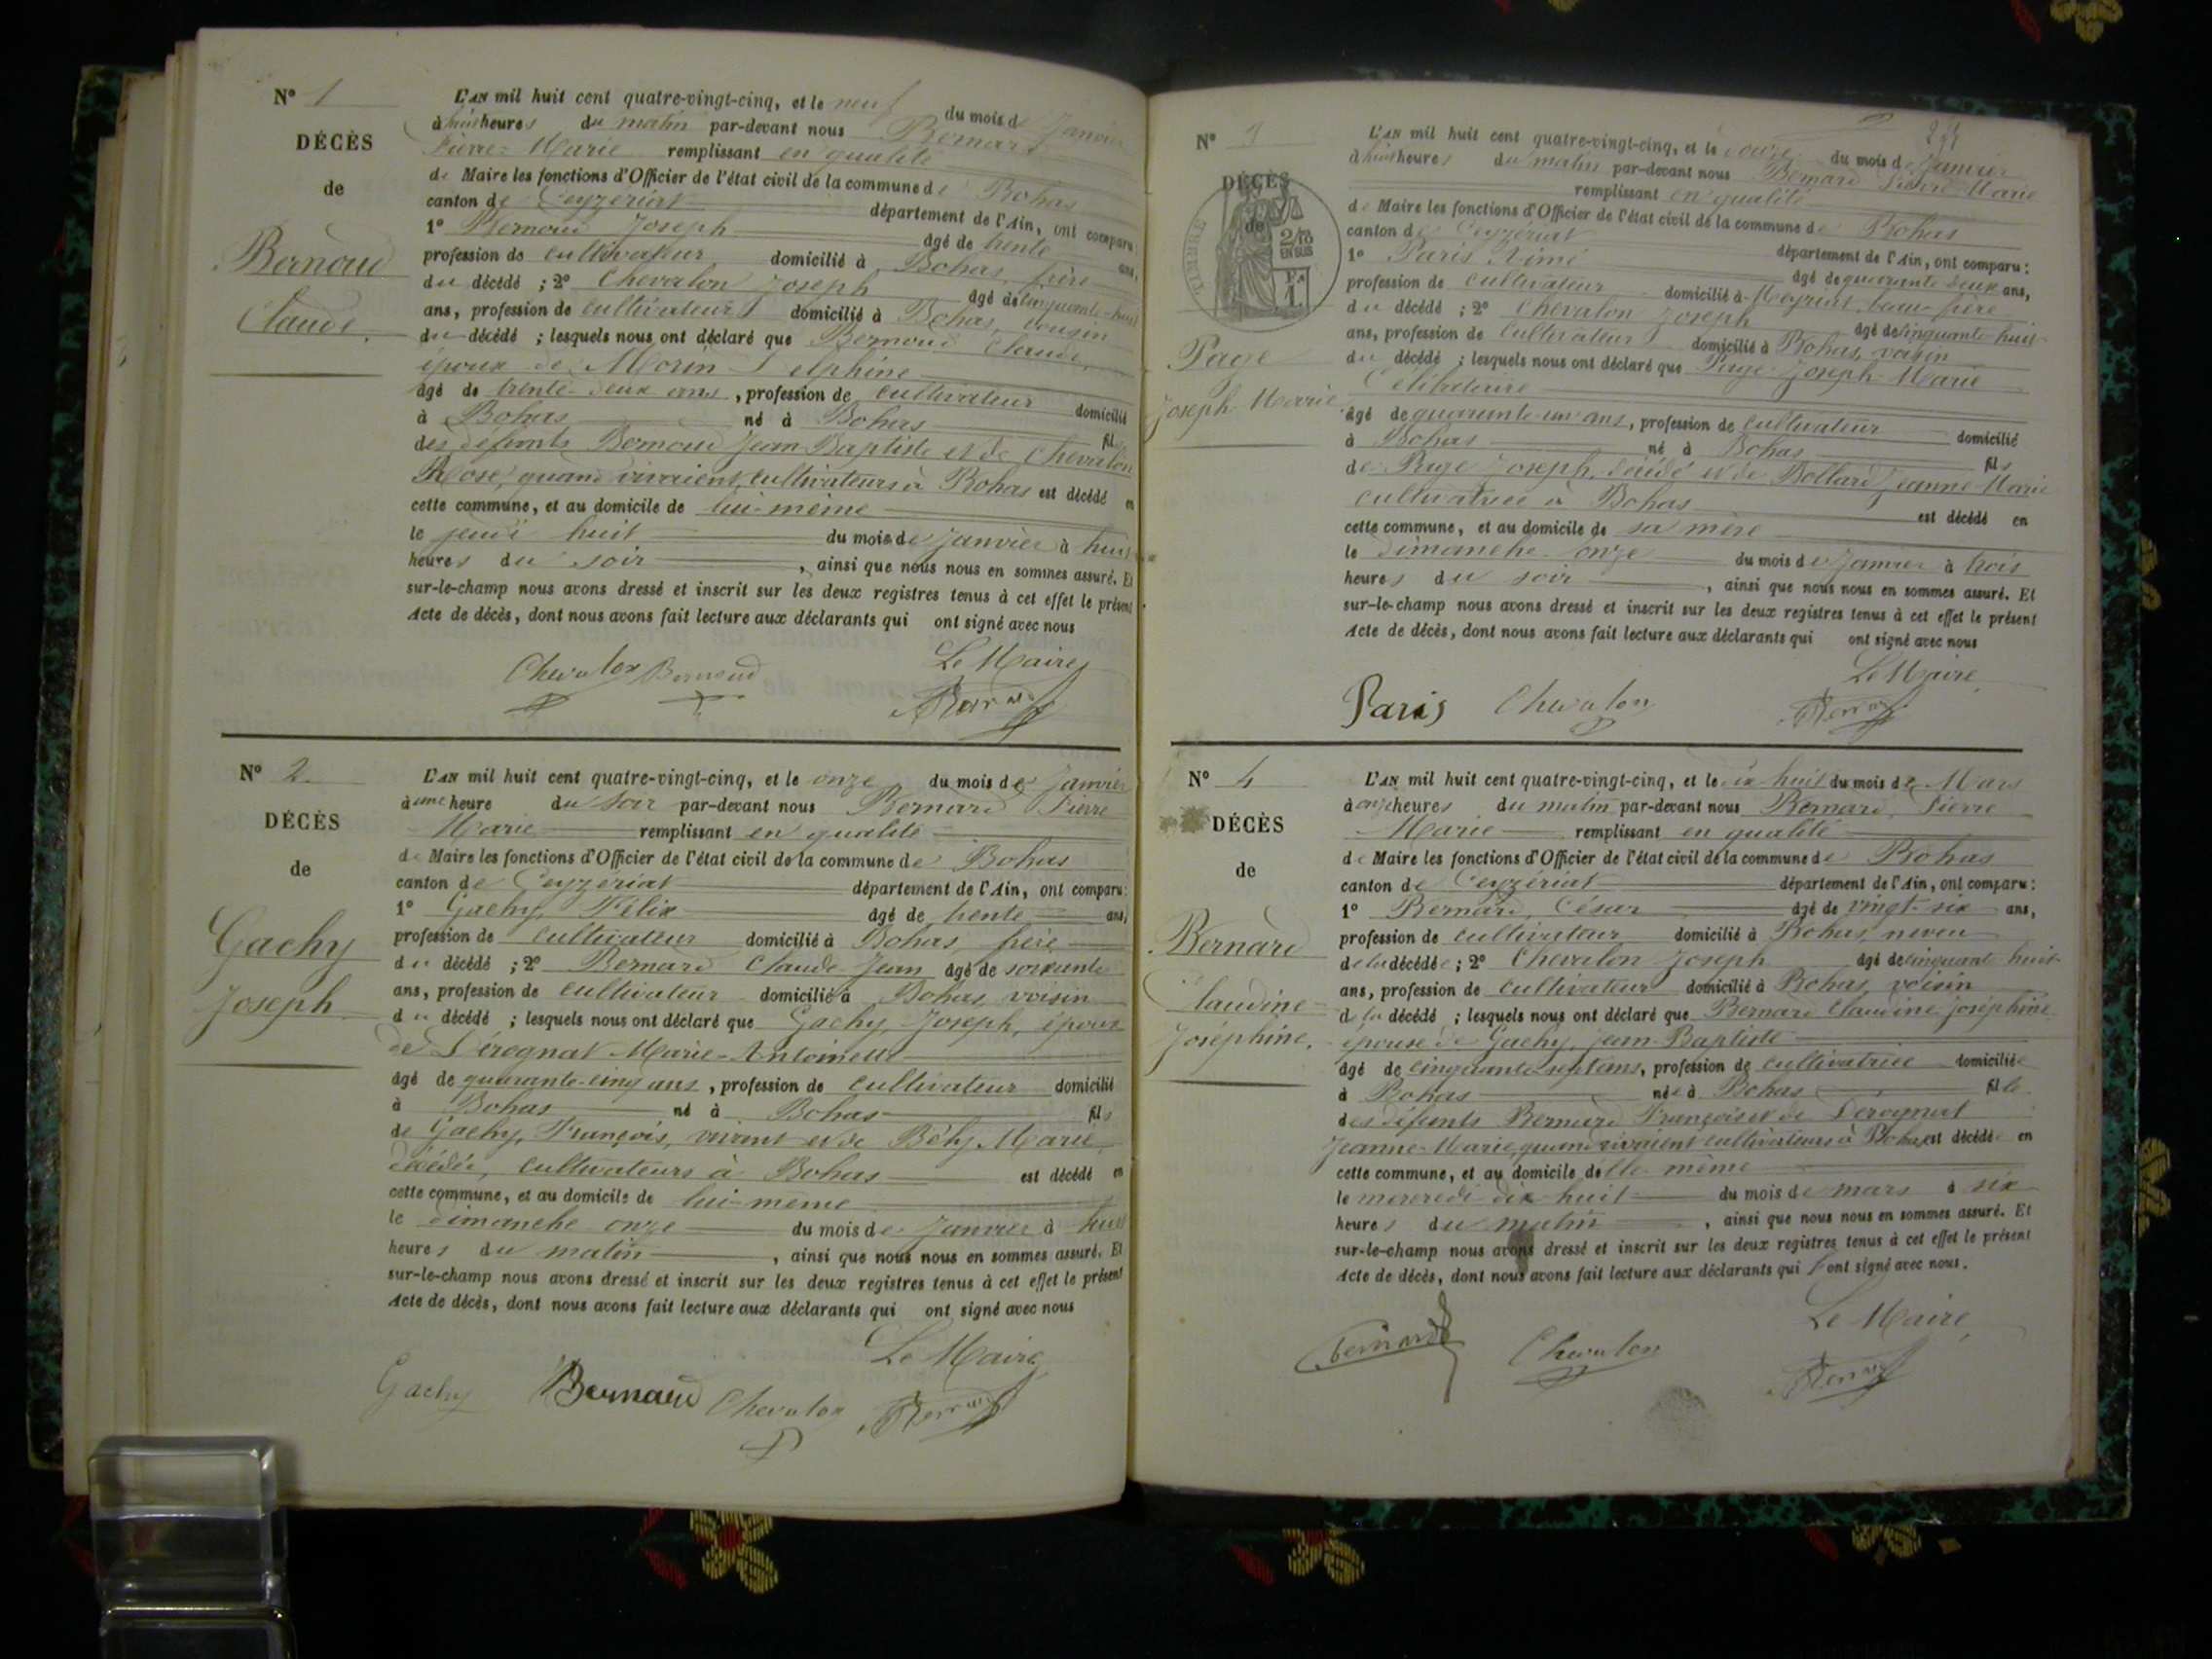 N° 1
DÉCÈS
de
Bernoud
Claude.
L'AN mil huit cent quatre-vingt-cinq, et le neuf du mois de Janvier
à huit heures du matin par-devant nous Bernard
Pierre-Marie remplissant en qualité
de Maire les fonctions d'Officier de l'état civil de la commune de Bohas
canton de Ceyzériat département de l'Ain, ont comparu:
1° Bernoud Joseph âgé de trente ans,
profession de cultivateur domicilié à Bohas, frère
du décédé ; 2° Chevalon Joseph âgé de cinquante-huit
ans, profession de cultivateur domicilié à Bohas, cousin
du décédé ; lesquels nous ont déclaré que Bernoud Claude,
époux de Morin Delphine
âgé de trente-deux ans, profession de cultivateur domicilié
à Bohas né à Bohas fils
des défunts Bernoud Jean-Baptiste et de Chevalon
Rose, quand vivaient, cultivateurs à Bohas est décédé en
cette commune, et au domicile de lui-même
le jeudi huit du mois de Janvier à huit
heures du soir, ainsi que nous nous en sommes assuré. Et
sur-le-champ nous avons dressé et inscrit sur les deux registres tenus à cet effet le présent
Acte de décès, dont nous avons fait lecture aux déclarants qui ont signé avec nous
Le Maire
Chevalon Bernoud Bernard
N° 2
DÉCÈS
de
Gachy
Joseph
L'AN mil huit cent quatre-vingt-cinq, et le onze du mois de Janvier
à une heure du soir par-devant nous Bernard Pierre
Marie remplissant en qualité
de Maire les fonctions d'Officier de l'état civil de la commune de Bohas
canton de Ceyzériat département de l'Ain, ont comparu:
1° Gachy, Félix âgé de trente ans,
profession de cultivateur domicilié à Bohas, frère
du décédé ; 2° Bernard Claude Jean âgé de soixante
ans, profession de cultivateur domicilié à Bohas, voisin
du décédé ; lesquels nous ont déclaré que Gachy, Joseph, époux
de Marie-Antoinette
âgé de quarante-cinq ans, profession de cultivateur domicilié
à Bohas né à Bohas fils
de Gachy, François, vivant et de Béhy Marie,
décédée, cultivateurs à Bohas est décédé en
cette commune, et au domicile de lui-même
le dimanche onze du mois de Janvier à huit
heures du matin, ainsi que nous nous en sommes assuré. Et
sur-le-champ nous avons dressé et inscrit sur les deux registres tenus à cet effet le présent
Acte de décès, dont nous avons fait lecture aux déclarants qui ont signé avec nous
Le Maire
Gachy Bernard Chevalon Bernard
N° 3
DÉCÈS
de
TIMBRE
2/10
EN SUS
1.
Page
Joseph-Marie
L'AN mil huit cent quatre-vingt-cinq, et le du mois de Janvier
à huit heures du matin par-devant nous Bernard Pierre-Marie
remplissant en qualité
de Maire les fonctions d'Officier de l'état civil de la commune de Bohas
canton de Ceyzériat département de l'Ain, ont comparu:
1° Paris Aimé âgé de quarante-deux ans,
profession de cultivateur domicilié à Meyriat, beau-frère
du décédé ; 2° Chevalon Joseph âgé de cinquante-huit
ans, profession de cultivateur domicilié à Bohas, voisin
du décédé ; lesquels nous ont déclaré que Page Joseph-Marie
Célibataire
âgé de quarante-un ans, profession de cultivateur domicilié
à Bohas né à Bohas fils
de Page Joseph, décédé et de Bollard Jeanne-Marie
cultivatrice à Bohas est décédé en
cette commune, et au domicile de sa mère
le dimanche onze du mois de Janvier à trois
heures du soir, ainsi que nous nous en sommes assuré. Et
sur-le-champ nous avons dressé et inscrit sur les deux registres tenus à cet effet le présent
Acte de décès, dont nous avons fait lecture aux déclarants qui ont signé avec nous
Le Maire
Paris Chevalon Bernard
N° 4
DÉCÈS
de
Bernard
Claudine
Joséphine.
L'AN mil huit cent quatre-vingt-cinq, et le dix-huit du mois de Mars
à onze heures du matin par-devant nous Bernard, Pierre
Marie remplissant en qualité
de Maire les fonctions d'Officier de l'état civil de la commune de Bohas
canton de Ceyzériat département de l'Ain, ont comparu:
1° Bernard, César âgé de vingt-six ans,
profession de cultivateur domicilié à Bohas, neveu
de la décédée ; 2° Chevalon Joseph âgé de cinquante-huit
ans, profession de cultivateur domicilié à Bohas, voisin
de la décédé ; lesquels nous ont déclaré que Bernard Claudine joséphine
épouse de Gachy, Jean-Baptiste
âgé de cinquante-sept ans, profession de cultivatrice domiciliée
à Bohas née à Bohas fille
des défunts Bernard François et de Peregnat
Jeanne-Marie, quand vivaient cultivateurs à Bohas est décédée en
cette commune, et au domicile d'elle-même
le mercredi dix-huit du mois de mars à six
heures du matin, ainsi que nous nous en sommes assuré. Et
sur-le-champ nous avons dressé et inscrit sur les deux registres tenus à cet effet le présent
Acte de décès, dont nous avons fait lecture aux déclarants qui ont signé avec nous.
Le Maire,
Bernard Chevalon Bernard